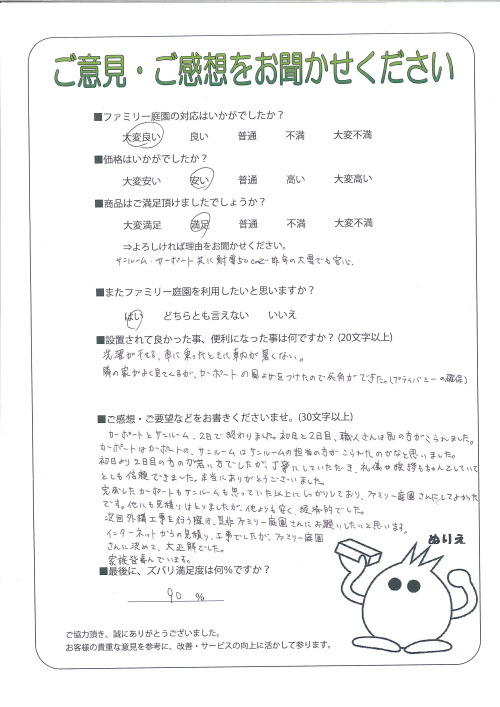 ご意見・ご感想をお聞かせください
■ファミリー庭園の対応はいかがでしたか？
大変良い 良い 普通 不満 大変不満
■価格はいかがでしたか？
大変安い 安い 普通 高い 大変高い
■商品はご満足頂けましたでしょうか？
大変満足 満足 普通 不満 大変不満
⇒よろしければ理由をお聞かせください。
サンルーム・カーポート共に耐雪50cmで昨年の大雪でも安心。
■またファミリー庭園を利用したいと思いますか？
はい どちらとも言えない いいえ
■設置されて良かった事、便利になった事は何ですか？(20文字以上)
洗濯が干せる、車に乗ったときに車内が暑くない。
隣の家がよく見えてくるが、カーポートの目かくしをつけたので死角ができた。(プライバシーの確保)
■ご感想・ご要望などをお書きくださいませ。(30文字以上)
カーポートとサンルーム、2日で終わりました。初日と2日目、職人さんは別の方がこられました。
カーポートはカーポートの、サンルームはサンルームの担当の方がこられたのかなと思いました。
初日より2日目の方のが若い方でしたが、丁寧にしていただき、礼儀や挨拶もちゃんとしていて
とても信頼できました。本当にありがとうございました。
完成したカーポートもサンルームも思っていた以上にしっかりしており、ファミリー庭園さんにしてよかった
です。他にも見積りはとりましたが、他よりも安く、経済的でした。
次回外構工事を行う際は、是非ファミリー庭園さんにお願いしたいと思います。
インターネットからの見積り、工事でしたが、ファミリー庭園
さんに決めて、大正解でした。
家族皆喜んでいます。
■最後に、ズバリ満足度は何％ですか？
90 %
ぬりえ
ご協力頂き、誠にありがとうございました。
お客様の貴重な意見を参考に、改善・サービスの向上に活かして参ります。